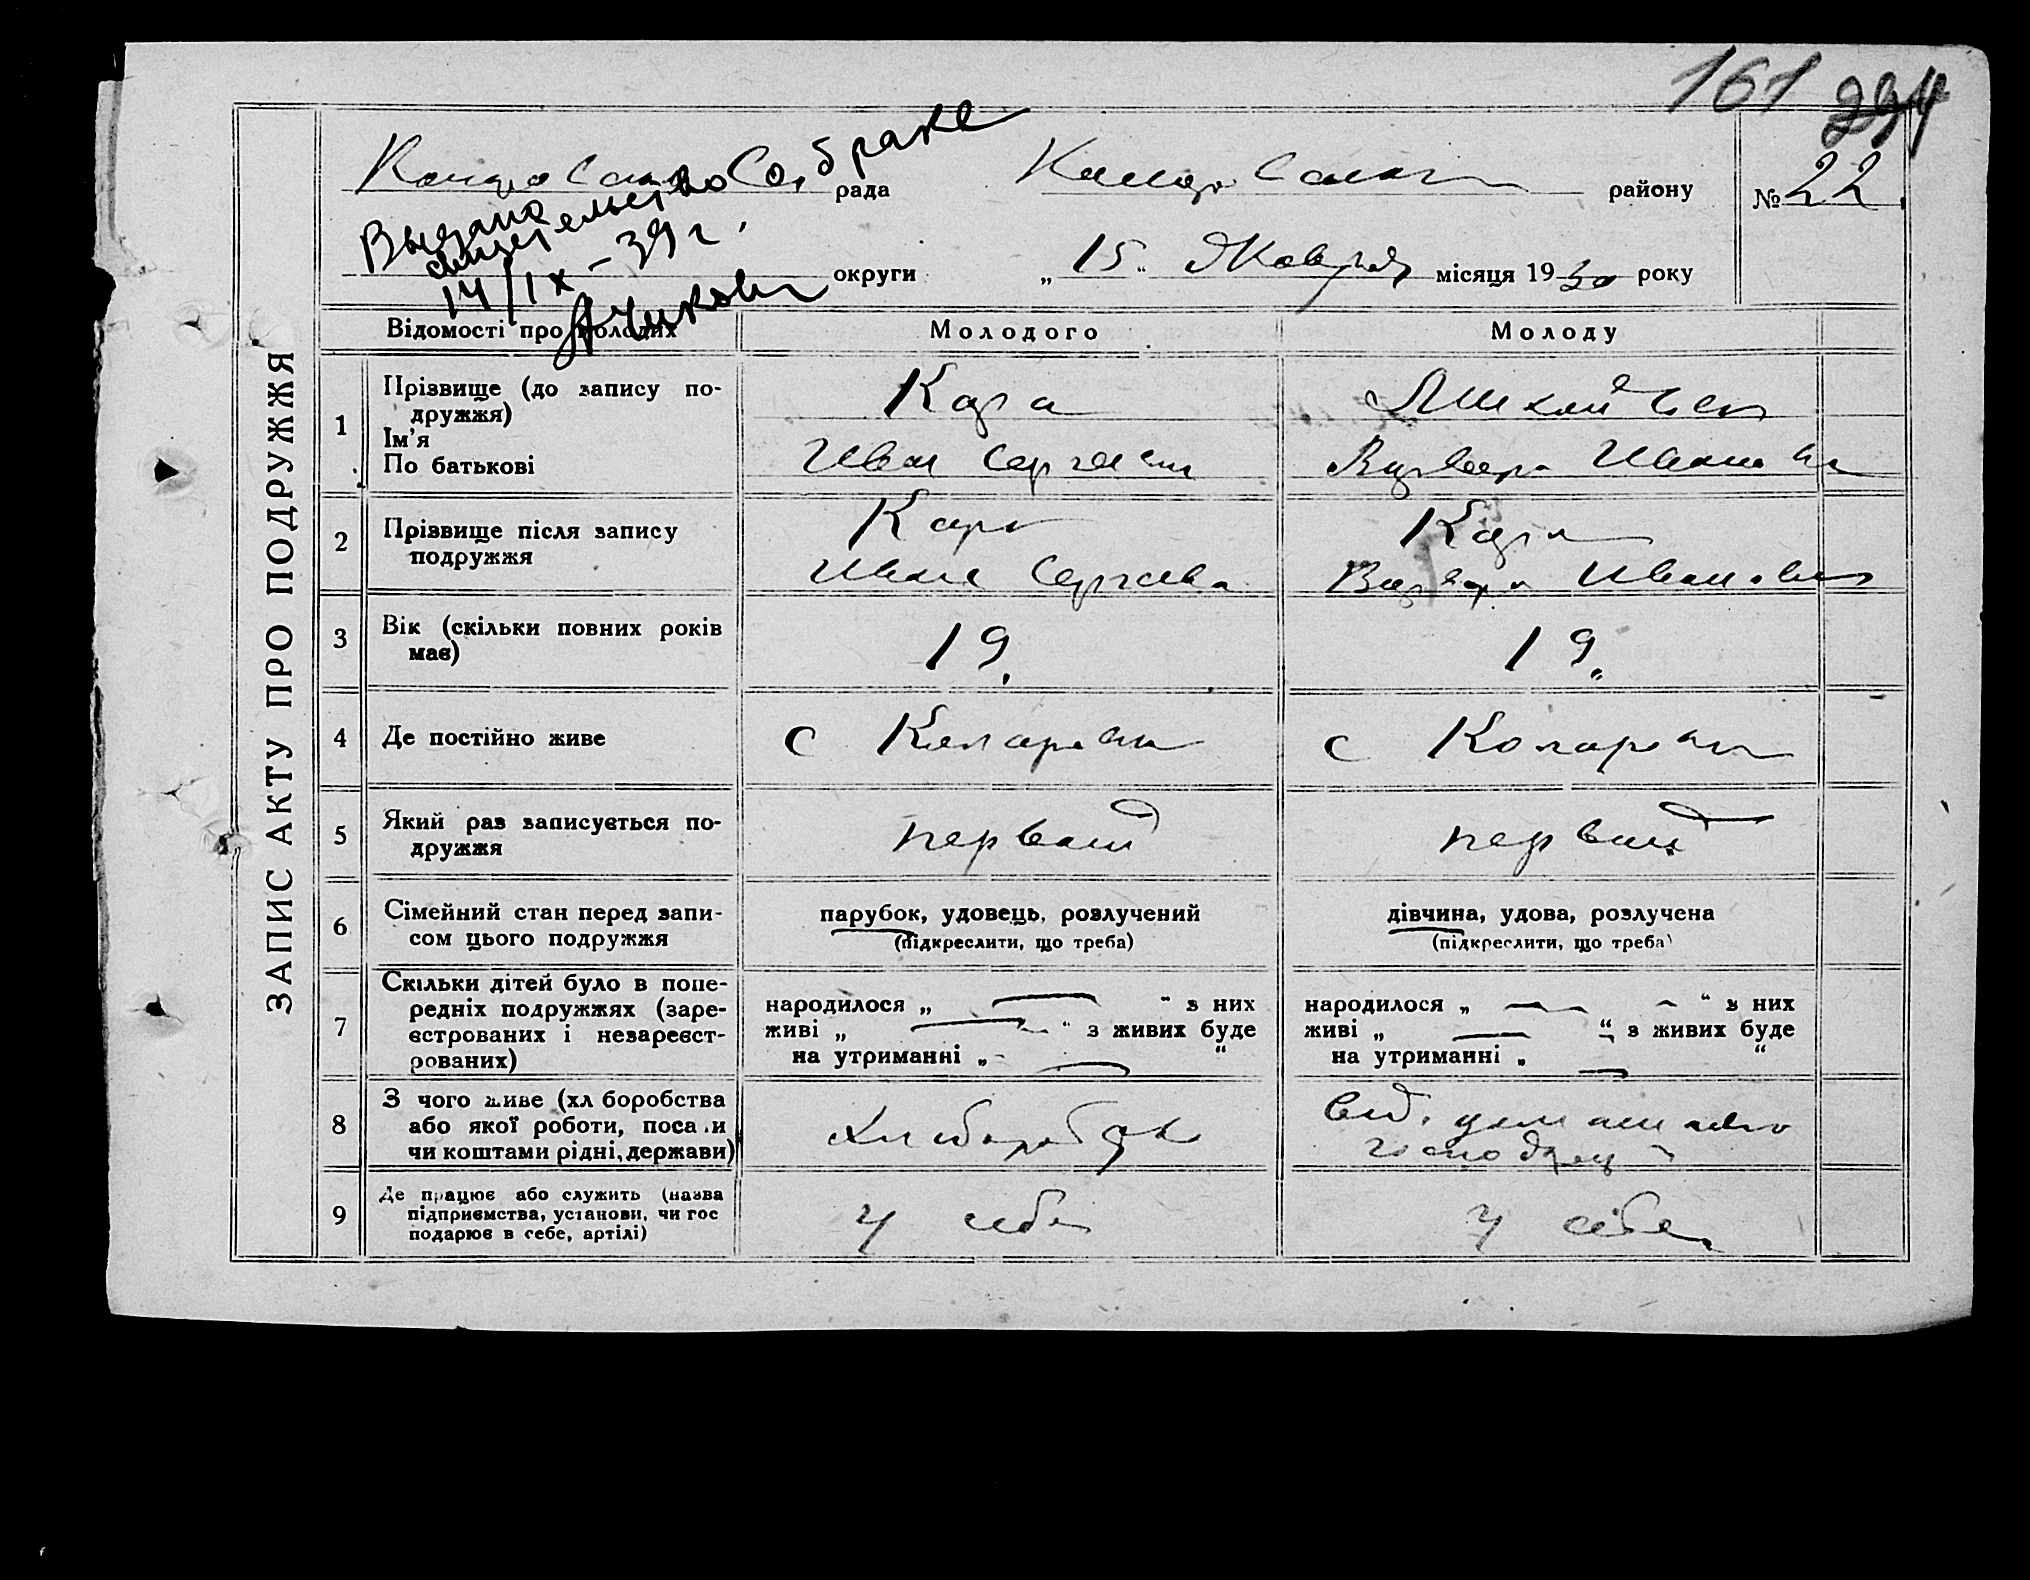 161 294
рада
району
№ 22
Выдано
свидетельство о браке
14/IX – 39 г.
округи
„ 15 “ Января місяця 1930 року
ЗАПИС АКТУ ПРО ПОДРУЖЖЯ
Відомості про молодих
Молодого
Молоду
1
Прізвище (до запису по-
дружжя)
Ім’я
По батькові
Кара
Иван Сергеевич
Варвара Ивановна
2
Прізвище після запису
подружжя
Кара
Иван
Кара
Варвара Ивановна
3
Вік (скільки повних років
має)
19
19
4
Де постійно живе
с
с
5
Який раз записується по-
дружжя
первый
первый
6
Сімейний стан перед запи-
сом цього подружжя
парубок, удовець, розлучений
(підкреслити, що треба)
дівчина, удова, розлучена
(підкреслити, що треба)
7
Скільки дітей було в попе-
редніх подружжях (заре-
єстрованих і незареєст-
рованих)
народилося „ “ з них
живі „ “ з живих буде
на утриманні „ “
народилося „ “ з них
живі „ “ з живих буде
на утриманні „ “
8
З чого живе (хл боробства
або якої роботи, поса и
чи коштами рідні, держави)
хлибороб
від
9
Де працює або служить (назва
підприємства, установи, чи гос
подарює в себе, артілі)
у себе
у себе